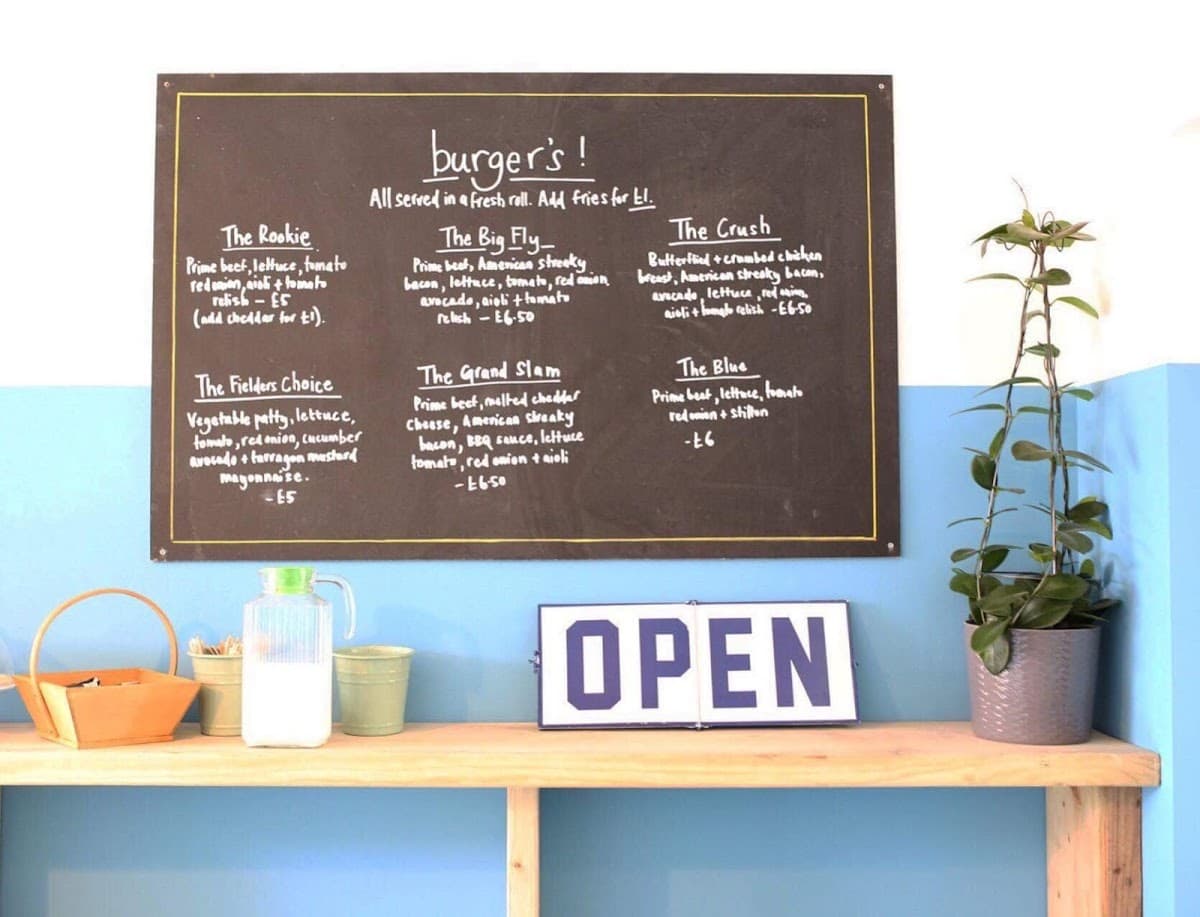 burger's!
All served in a fresh roll. Add fries for £1.
The Rookie
Prime beef, lettuce, tomato
red onion, aioli + tomato
relish - £5
(add cheddar for £1).
The Big Fly
Prime beef, American streaky
bacon, lettuce, tomato, red onion
avocado, aioli + tomato
relish - £6.50
The Crush
Butterflied + crumbed chicken
breast, American streaky bacon,
avocado, lettuce, red onion,
aioli + tomato relish - £6.50
The Fielders Choice
Vegetable patty, lettuce,
tomato, red onion, cucumber
avocado + tarragon mustard
mayonnaise.
- £5
The Grand Slam
Prime beef, melted cheddar
cheese, American streaky
bacon, BBQ sauce, lettuce
tomato, red onion + aioli
- £6.50
The Blue
Prime beef, lettuce, tomato
red onion + stilton
- £6
OPEN